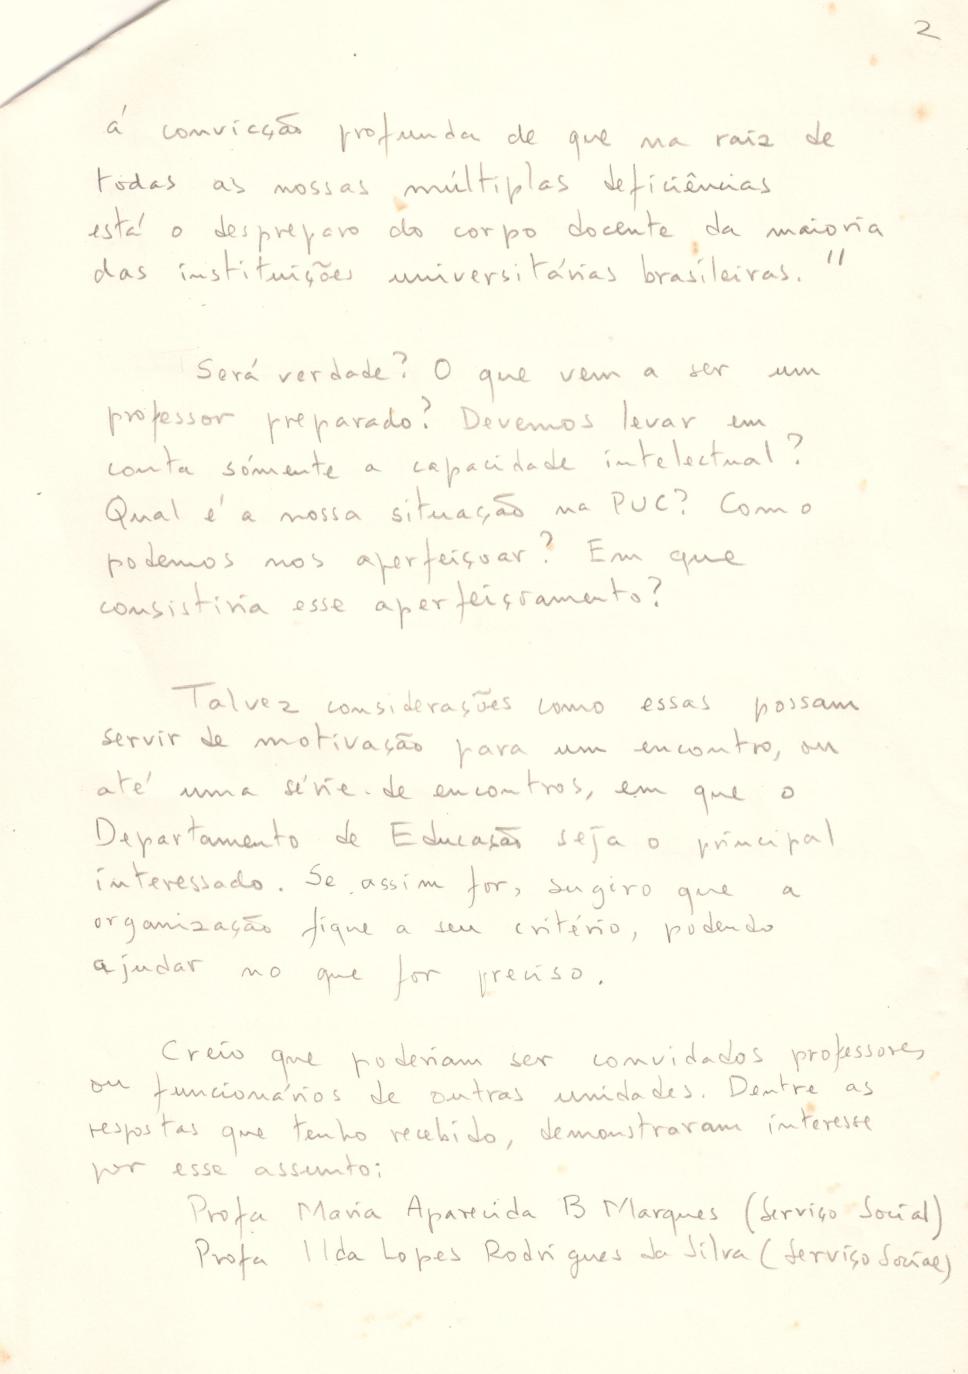 2
á convicção profunda de que na raiz de
todas as nossas múltiplas deficiências
está o despreparo do corpo docente da maioria
das instituições universitárias brasileiras."
Será verdade? O que vem a ser um
professor preparado? Devemos levar em
conta sómente a capacidade intelectual?
Qual é a nossa situação na PUC? Como
podemos nos aperfeiçoar? Em que
consistiria esse aperfeiçoamento?
Talvez considerações como essas possam
servir de motivação para um encontro, ou
até uma série de encontros, em que o
Departamento de Educação seja o principal
interessado. Se assim for, sugiro que a
organização fique a seu critério, podendo
ajudar no que for preciso.
Creio que poderiam ser convidados professores
ou funcionários de outras unidades. Dentre as
respostas que tenho recebido, demonstraram interesse
por esse assunto:
Profa Maria Aparecida B Marques (Serviço Social)
Profa Ilda Lopes Rodrigues da Silva (Serviço Social)